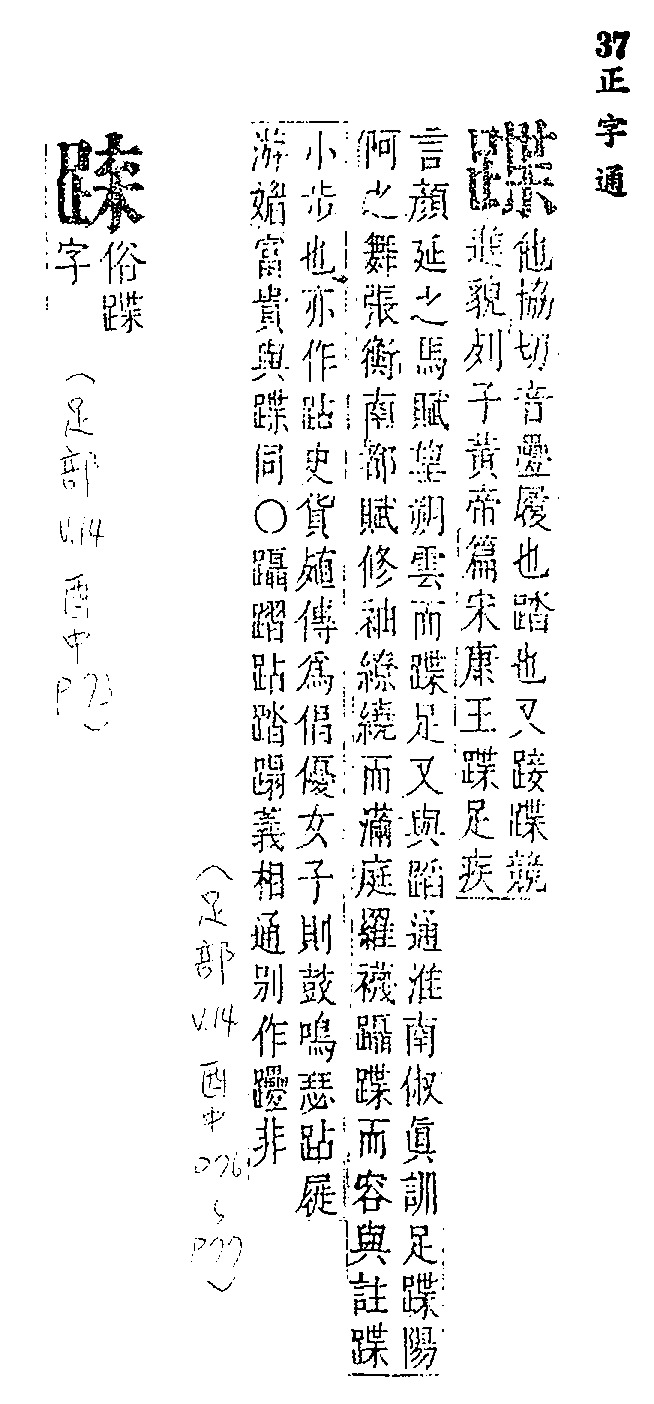 37正字通
蹀
他協切音疊履也踏也又踥蹀競
進貌列子黃帝篇宋康王蹀足疾
言顏延之馬賦望朔雲而蹀足又與蹈通淮南俶眞訓足蹀陽
阿之舞張衡南都賦修袖繚繞而滿庭羅襪躡蹀而容與註蹀
小步也亦作跕史貨殖傳爲倡優女子則鼓鳴瑟跕屣
游媚富貴與蹀同〇躡蹹跕踏蹋義相通別作非
(足部 V.14 酉中 P76~P77)
俗蹀
字
(足部 V.14 酉中)